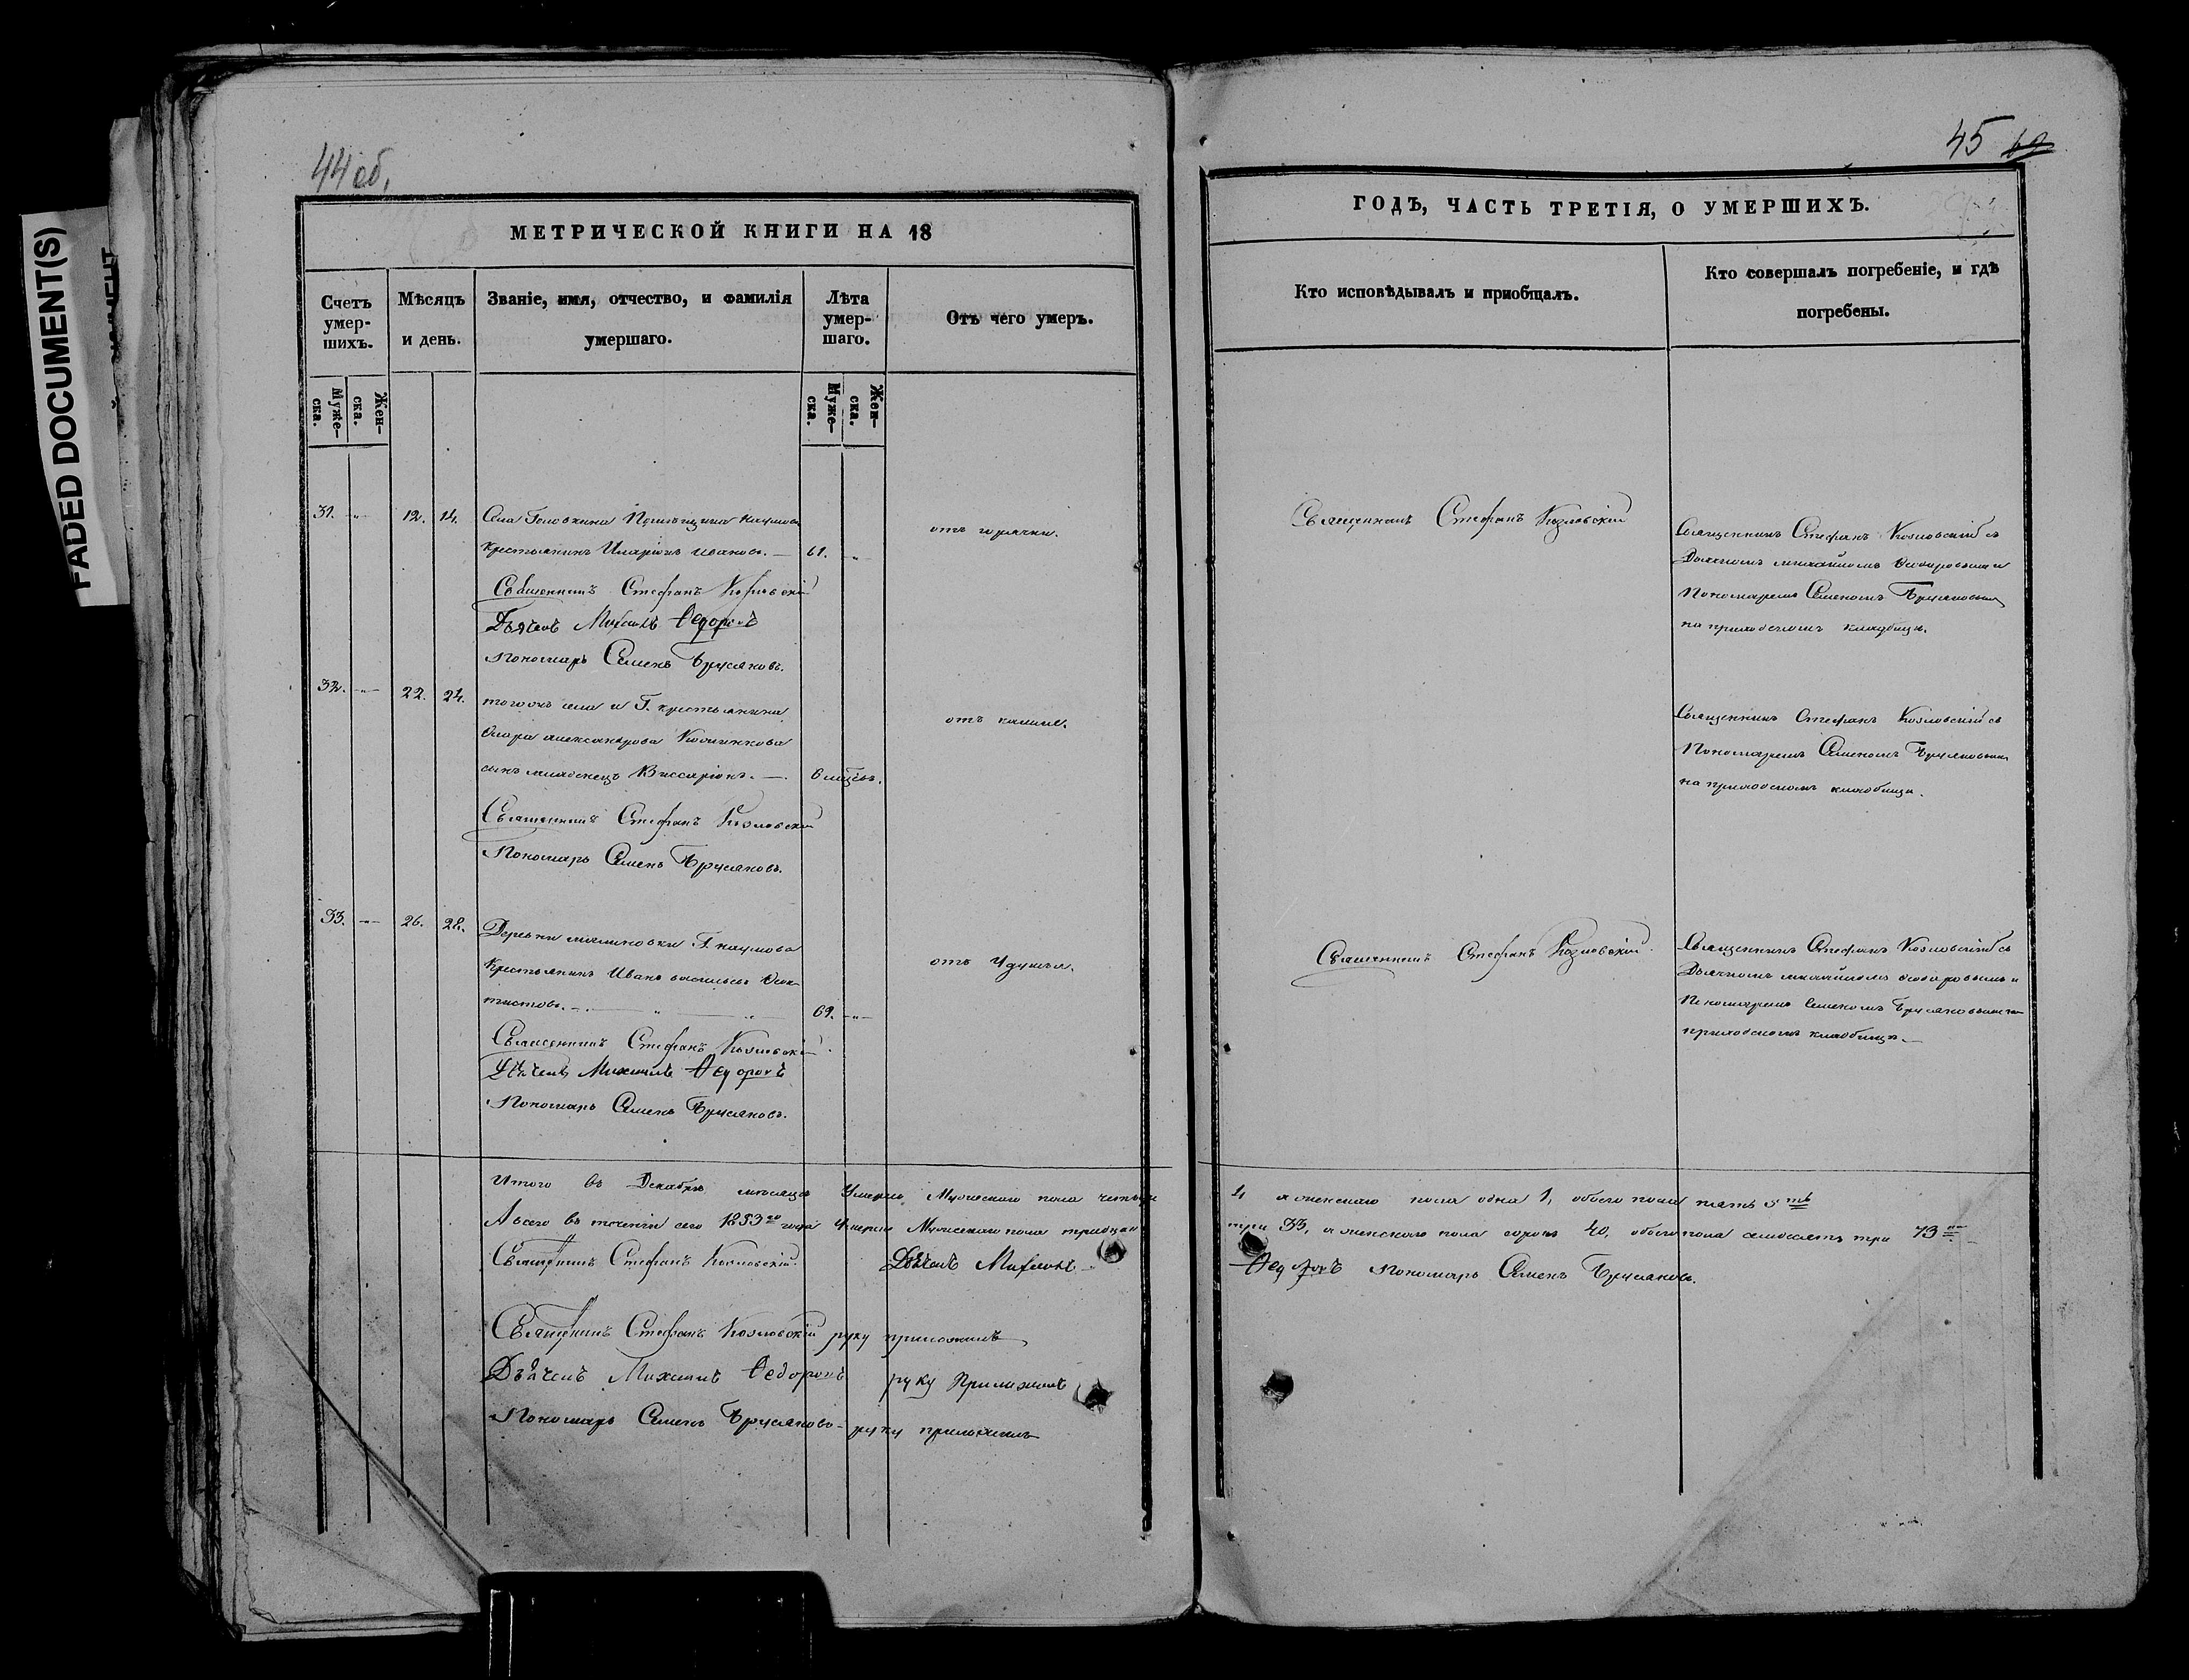 FADED DOCUMENT(S)
44 об.
МЕТРИЧЕСКОЙ КНИГИ НА 18
Счетъ умер-шихъ.
Мѣсяцъ и день.
Званіе, имя, отчество, и фамилія умершаго.
Лѣта умер-шаго.
Отъ чего умеръ.
Муже-ска.
Жен-ска.
Муже-ска.
Жен-ска.
31. 12. 14. Села Головкина Помѣщика Наумова
крестьянинъ Иларіонъ Ивановъ. — 61.
отъ горячки.
Священникъ Стефанъ Козловскій
Дьячекъ Михаилъ Ѳедоровъ
Пономарь Семенъ
32. 22. 24. тогожъ села и Г. крестьянина
александрова
сынъ младенецъ Виссаріонъ. — 6 мѣсяц.
отъ кашля.
Священникъ Стефанъ Козловскій
Пономарь Семенъ
33. 26. 28. Деревни Г. Наумова
Крестьянинъ Иванъ васильевъ Ѳеок-
тистовъ. 69.
отъ удушья.
Священникъ Стефанъ Козловскій
Дьячекъ Михаилъ Ѳедоровъ
Пономарь Семенъ
Итого въ Декабрѣ мѣсяцѣ Умерло Мужескаго пола четыре
А всего въ теченіи сего 1853го года Умерло Мужескаго пола тридцать
Священникъ Стефанъ Козловскій. Дьячекъ Михаилъ
Священникъ Стефанъ Козловскій руку приложилъ
Дьячекъ Михаилъ Ѳедоровъ руку Приложилъ
Пономарь Семенъ руку приложилъ
45
ГОДЪ, ЧАСТЬ ТРЕТІЯ, О УМЕРШИХЪ.
Кто исповѣдывалъ и приобщалъ.
Кто совершалъ погребеніе, и гдѣ погребены.
Священникъ Стефанъ Козловскій
Священникъ Стефанъ Козловскій съ
Дьячкомъ михайломъ Ѳедоровымъ и
Пономаремъ Семеномъ
на приходскомъ кладбищѣ.
Священникъ Стефанъ Козловскій съ
Пономаремъ Семеномъ
на приходскомъ кладбищѣ.
Священникъ Стефанъ Козловскій
Священникъ Стефанъ Козловскій съ
Дьячкомъ михайломъ Ѳедоровымъ и
Пономаремъ Семеномъ на
приходскомъ кладбищѣ.
4 а женскаго пола одна 1, обоего пола пять 5ть
три 33, а женскаго пола сорокъ 40, обоего пола семдесятъ три 73
Ѳедоровъ Пономарь Семенъ